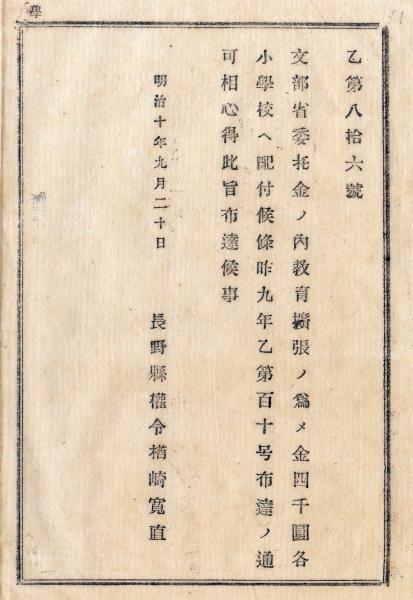 學
乙第八拾六號
文部省委托金ノ內教育擴張ノ爲メ金四千圓各
小學校ヘ配付候條昨九年乙第百十号布達ノ通
可相心得此旨布達候事
明治十年九月二十日
長野縣權令楢崎寬直